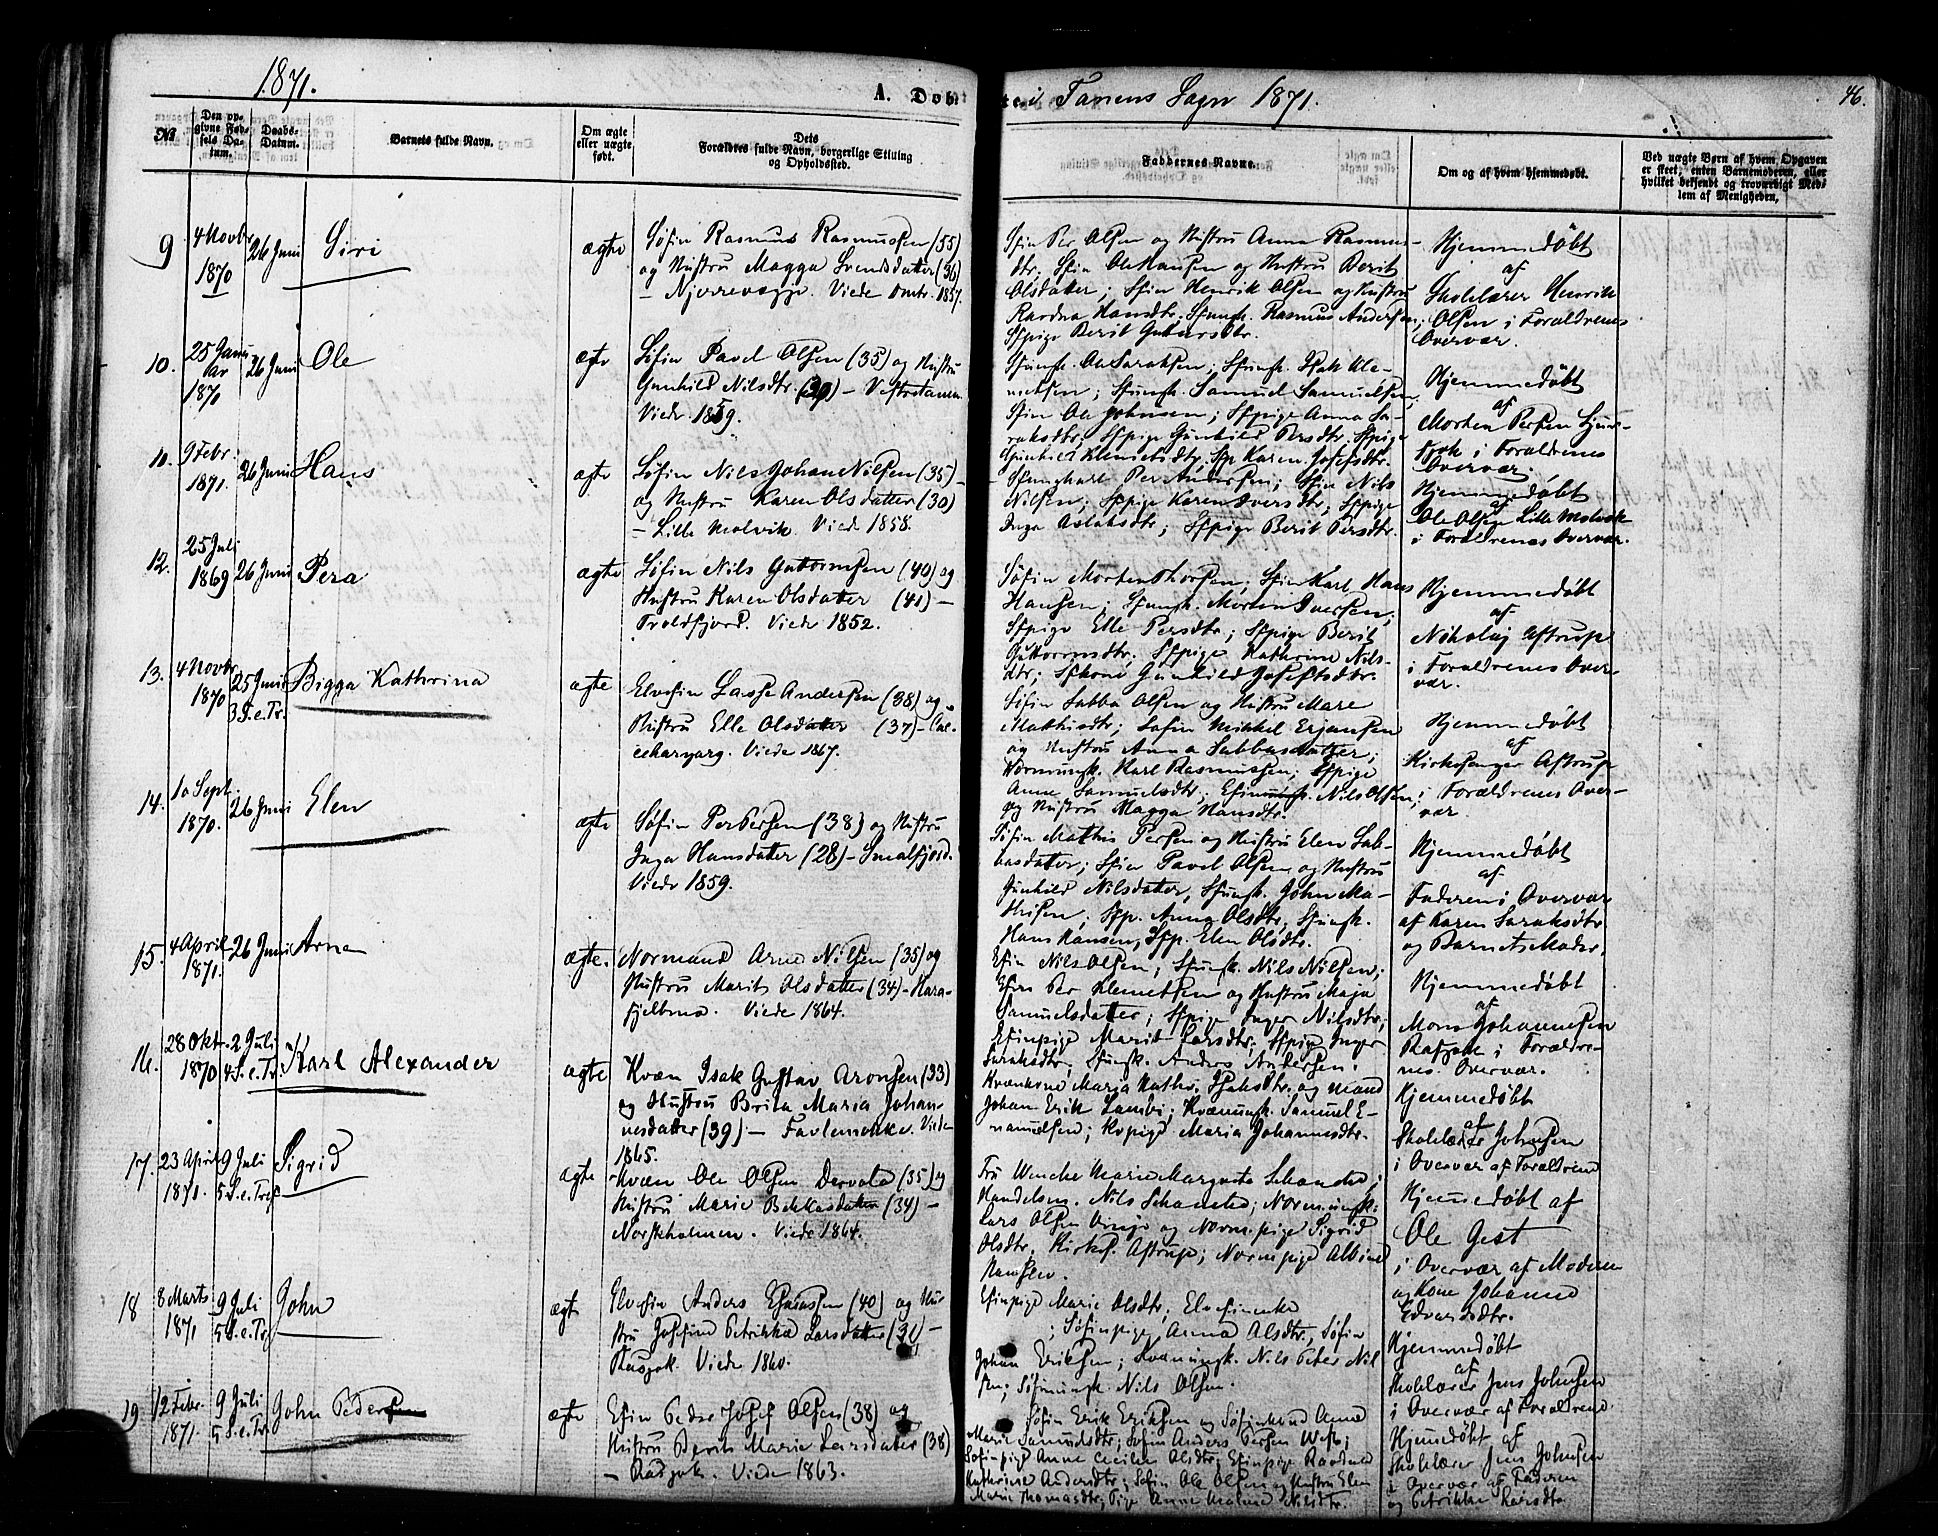 1871.
A. Døb-
te i Tanens Sogn 1871.
46.
No.
Den op-
givne Fød-
sels Da-
tum.
Daabs-
Datum.
Barnets fulde Navn.
Om ægte
eller uægte
født.
Dets
Forældres fulde Navn, borgerlige Stilling
og Opholdssted.
Faddernes Navne.
Om og af hvem hjemmedøbt.
Ved uægte Børn af hvem Opgaven
er skeet, enten Barnemoderen, eller
hvilket bekjendt og troværdigt Med-
lem af Menigheden.
9
4 Novbr
1870
26 Juni
Siri
ægte
Søfin Rasmus Rasmussen (55)
og Hustru Magga Svendsdatter (36)
Viede 1857.
Sfin Per Olsen og Hustru Anna Rasmus-
dtr; Sfin Ole Hansen og Hustru Berit
Olsdatter; Sfin Henrik Olsen og Hustru
Ravdna Hansdtr; Sfungk. Rasmus Andersen;
Sfpige Berit Guttormsdtr.
Hjemmedøbt
af
Skolelærer Henrik
Olsen i Forældrenes
Overvær.
10.
25 Janu
ar
1870
26 Juni
Ole
ægte
Søfin Pavel Olsen (35) og Hustru
Gunhild Nilsdtr. (39) – Vestretanen
Viede 1859.
Sfungk. Ole Saraksen; Sfungk. Isak Kle-
metsen; Sfungk. Samuel Samuelsen;
Sfin Ole Johnsen; Sfpige Anna Sa-
raksdtr; Sfpige Gunhild Persdtr; Sfpige
Gunhild Klemetsdtr; Sfp Karen Josefsdtr.
Hjemmedøbt
af
Morten Persen
i Forældrenes
Overvær.
11.
9 Febr.
1871.
26 Juni
Hans
ægte
Søfin Nils Johan Nilsen (35) –
og Hustru Karen Olsdatter (30)
– Lille Molvik. Viede 1858.
Sfungkarl Per Andersen; Sfin Nils
Nilsen; Sfpige Karen Iversdtr; Sfpige
Inga Aslaksdtr; Sfpige Berit Persdtr.
Hjemmedøbt
af
Ole Olsen Lille Molvik
i Forældrenes Overvær.
12.
25 Juli
1869
26 Juni
Pera
ægte
Søfin Nils Guttormsen (40) og
Hustru Karen Olsdatter (41) –
Troldfjord. Viede 1852.
Søfin Morten Thorsen; Sfin Karl Hans
Hansen; Sfungk. Morten Iversen;
Sfpige Elle Persdtr; Sfpige Berit
Guttormsdtr; Sfpige Kathrine Nils-
dtr; Sfkone Gunhild Josefsdtr.
Hjemmedøbt
af
Nikolaj Astrup
i Forældrenes Over-
vær.
13.
4 Novbr
1870
25 Juni
3 S.e.Tr.
Bigga Kathrina
ægte
Elvefin Lasse Andersen (38) og
Hustru Elle Olsdatter (37) –
Viede 1867.
Søfin Sabba Olsen og Hustru Mare
Mathisdtr; Søfin Mikkel Erjansen
og Hustru Anna Sabbasdatter;
Normungk. Karl Rasmussen; Sfpige
Anne Samuelsdtr; Nils Olsen
og Hustru Magga Hansdtr.
Hjemmedøbt
af
Kirkesanger Astrup
i Forældrenes Over-
vær.
14.
10 Septr.
1870.
26 Juni
Elen
ægte
Søfin Per Persen (38) og Hustru
Inga Hansdatter (28) – Smalfjord.
Viede 1859.
Søfin Mathis Persen og Hustru Elen Sab-
basdatter; Sfin Pavel Olsen og Hustru
Gunhild Nilsdatter, Sfungk. John Ma-
thisen. Sfp. Anna Olsdtr, Sfungk.
Hans Hansen, Sfp. Elen Olsdtr.
Hjemmedøbt
af
Faderen i Overvær
af Karen Saraksdtr
og Barnets Moder.
15.
4 April
1871.
26 Juni
Arne
ægte.
Normand Arne Nilsen (35) og
Hustru Marit Olsdatter (34) – Kara-
Viede 1864.
Efin Nils Olsen; Sfungk. Nils Nilsen;
Efin Per Klemetsen og Hustru Maja
Samuelsdatter; Sfpige Inger Nilsdtr;
Efinpige Marit Larsdtr; Sfpige Inger
Saraksdtr; Sfungk. Anders Andersen.
Hjemmedøbt
af
Mons Johannesen
i Forældre-
nes Overvær.
16.
28 Oktr.
1870
2 Juli
4 S.e.Tr.
Karl Alexander
ægte
Kvæn Isak Gustav Aronsen (33)
og Hustru Brita Maria Johan-
nesdatter (39) – Viede
1865.
Kvænkone Maria Kathr. Isaksdtr. og Mand
Johan Erik Lambi; Kvænungk. Samuel E-
manuelsen; Kvpige Maria Johannesdtr.
Hjemmedøbt
af
Skolelærer Johnsen
i Overvær af Forældrene
17.
23 April
1871.
9 Juli
5 S.e.Tref.
Sigrid
ægte
Kvæn Ole Olsen Dervola (35) og
Hustru Marie Bekkasdatter (34) –
Norskholmen. Viede 1864.
Fru Wenche Marie Margrete Schanche;
Handelsm. Nils Schanche; Normungk.
Lars Olsen og Normpige Sigrid
Olsdtr. Kirkes. Astrup; Normpige Albine
Hjemmedøbt af
Ole Gest
i Overvær af Moderen
og Kone Johanne
Edvardsdtr.
18
8 Marts
1871
9 Juli
5 S.e.Tr.
John
ægte
Elvefin Anders Esaiassen (40) og Hu-
stru Josefine Petrikka Larsdatter (31) –
Rusjok. Viede 1860.
Efinpige Marie Olsdtr; Elvefinenke
; Søfinpige Anna Olsdtr, Søfin
Johan Eriksen; Kvænungk. Nils Peter Nil
sen; Søfinungk. Nils Olsen.
Hjemmedøbt
af
Skolelærer Jens Johnsen
i Overvær af Forældrene.
19
12 Febr.
1871.
9 Juli
5 S.e.Tr.
John Pedersen
ægte
Efin Peder Josef Olsen (38) og
Hustru Berit Marie Larsdatter (38)
– Viede 1863.
Søfin Erik Eriksen og Søfinkone Anne
Marie Samuelsdtr; Søfin Anders Persen West;
Søfinpige Anne Cecilie Olsdtr; Efinpige Ravdna
Kathrine Andersdtr; Søfin Ole Olsen og Hustru Elen
Marie Thomasdtr; Pige Anne Malene Nilsdtr.
Hjemmedøbt af
Skolelærer Jens Johnsen
i Overvær af Faderen
og Petrikke Larsdtr